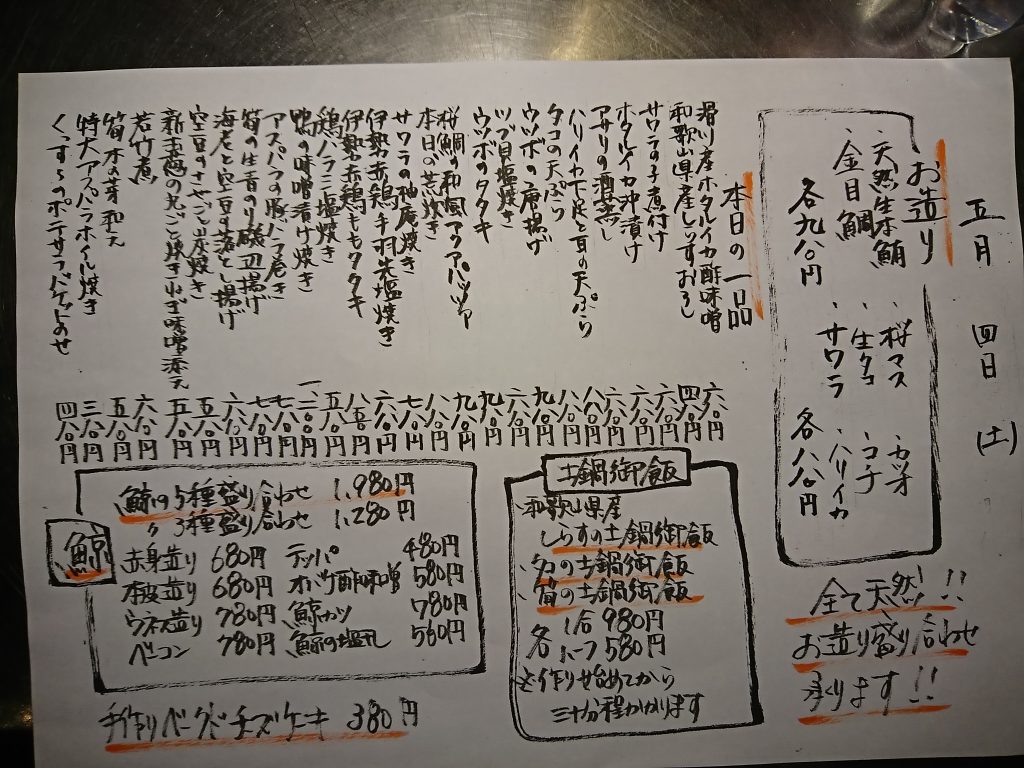 五月 四日 (土)
お造り
、天然生本鮪
、金目鯛
各九八〇円
、桜マス
、生タコ
、サワラ
、カツオ
、コチ
、ハリイカ
各八八〇円
全て天然!!
お造り盛り合わせ
承ります!!
本日の一品
滑川産ホタルイカ酢味噌 六八〇円
和歌山県産しらすおろし 四八〇円
サワラの子煮付け 六八〇円
ホタルイカ沖漬け 六八〇円
アサリの酒蒸し 八八〇円
ハリイカ下足と耳の天ぷら 八八〇円
タコの天ぷら 九八〇円
ウツボの唐揚げ 六八〇円
ツブ貝塩焼き 九八〇円
ウツボのタタキ 九八〇円
桜鯛の和風アクアパッツァ
本日の荒炊き 八八〇円
サワラの柚庵焼き 七八〇円
伊勢赤鶏手羽先塩焼き 六八〇円
伊勢赤鶏ももタタキ 八五〇円
鶏ハラミ塩焼き 五八〇円
鴨の味噌漬け焼き
アスパラの豚バラ巻き 七八〇円
筍の生青のり磯辺揚げ 七八〇円
海老と空豆の落とし揚げ 六八〇円
空豆のさやごと炭焼き 五八〇円
新玉葱の丸ごと焼き小ねぎ味噌添え 五八〇円
若竹煮 六八〇円
筍木の芽和え 五八〇円
特大アスパラホイル焼き 三八〇円
くっすらのポテサラバゲットのせ 四八〇円
土鍋御飯
、和歌山県産
しらすの土鍋御飯
、タコの土鍋御飯
、筍の土鍋御飯
各 1合 980円
ハーフ 580円
※作り始めてから
三十分程かかります
鯨
鯨の5種盛り合わせ 1,980円
〃 3種盛り合わせ 1,280円
赤身造り 680円 テッパ 480円
本皮造り 680円 オバケ酢味噌 580円
ウネス造り 780円 鯨カツ 780円
ベーコン 780円 鯨の塩孔 560円
手作りベークドチーズケーキ 380円